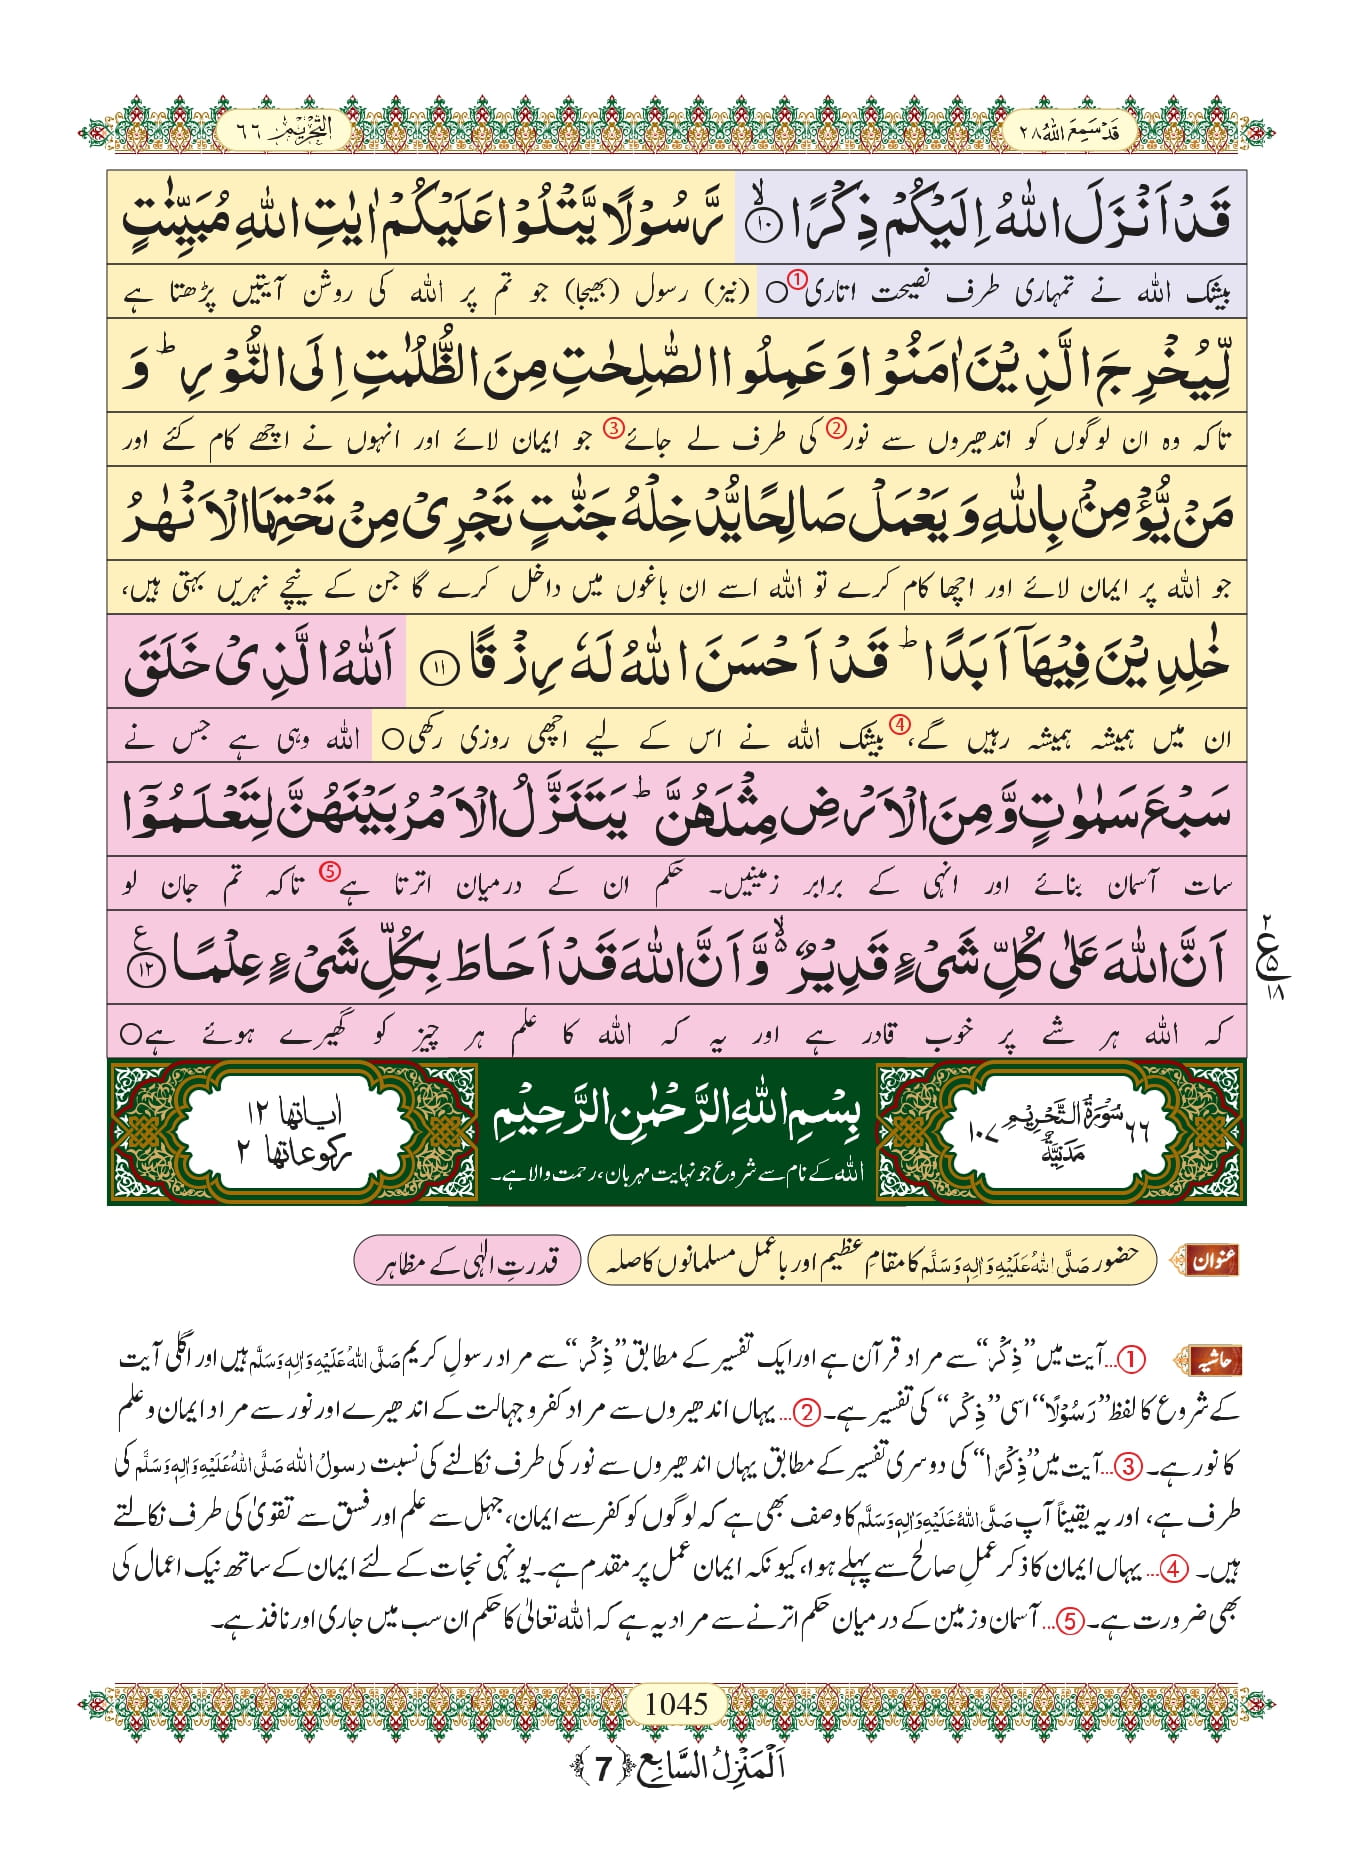 قَدْ سَمِعَ اللہُ ۲۸
التَّحْرِیْم ۶۶
قَدْ اَنْزَلَ اللّٰهُ اِلَیْكُمْ ذِكْرًاۙ۝۱۰ رَّسُوْلًا یَّتْلُوْا عَلَیْكُمْ اٰیٰتِ اللّٰهِ مُبَیِّنٰتٍ
بیشک اللہ نے تمہاری طرف نصیحت اتاری① ○ (نیز) رسول (بھیجا) جو تم پر اللہ کی روشن آیتیں پڑھتا ہے
لِّیُخْرِجَ الَّذِیْنَ اٰمَنُوْا وَ عَمِلُوا الصّٰلِحٰتِ مِنَ الظُّلُمٰتِ اِلَى النُّوْرِؕ وَ
تاکہ وہ ان لوگوں کو اندھیروں سے نور② کی طرف لے جائے③ جو ایمان لائے اور انہوں نے اچھے کام کئے اور
مَنْ یُّؤْمِنْۢ بِاللّٰهِ وَ یَعْمَلْ صَالِحًا یُّدْخِلْهُ جَنّٰتٍ تَجْرِیْ مِنْ تَحْتِهَا الْاَنْهٰرُ
جو اللہ پر ایمان لائے اور اچھا کام کرے تو اللہ اسے ان باغوں میں داخل کرے گا جن کے نیچے نہریں بہتی ہیں،
خٰلِدِیْنَ فِیْهَاۤ اَبَدًاؕ قَدْ اَحْسَنَ اللّٰهُ لَهٗ رِزْقًا۝۱۱ اَللّٰهُ الَّذِیْ خَلَقَ
ان میں ہمیشہ ہمیشہ رہیں گے،④ بیشک اللہ نے اس کے لیے اچھی روزی رکھی○ اللہ وہی ہے جس نے
سَبْعَ سَمٰوٰتٍ وَّ مِنَ الْاَرْضِ مِثْلَهُنَّؕ یَتَنَزَّلُ الْاَمْرُ بَیْنَهُنَّ لِتَعْلَمُوْۤا
سات آسمان بنائے اور انہی کے برابر زمینیں۔ حکم ان کے درمیان اترتا ہے⑤ تاکہ تم جان لو
اَنَّ اللّٰهَ عَلٰى كُلِّ شَیْءٍ قَدِیْرٌۙ۬ وَّ اَنَّ اللّٰهَ قَدْ اَحَاطَ بِكُلِّ شَیْءٍ عِلْمًا۠۝۱۲ ع
۲ ع ۵ ۱۸
کہ اللہ ہر شے پر خوب قادر ہے اور یہ کہ اللہ کا علم ہر چیز کو گھیرے ہوئے ہے○
۶۶ سُوْرَۃُ التَّحْرِیْمِ مَدَنِیَّۃٌ ۱۰۷
بِسْمِ اللّٰهِ الرَّحْمٰنِ الرَّحِیْمِ
اللہ کے نام سے شروع جو نہایت مہربان، رحمت والا ہے۔
اٰیاتھا ۱۲
رکوعاتھا ۲
عنوان
حضور صَلَّی اللہُ عَلَیْہِ وَاٰلِہٖ وَسَلَّم کا مقامِ عظیم اور باعمل مسلمانوں کا صلہ
قدرتِ الٰہی کے مظاہر
حاشیہ
①...آیت میں”ذِكْرْ“سے مراد قرآن ہے اور ایک تفسیر کے مطابق”ذِكْرْ“سے مراد رسولِ کریم صَلَّی اللہُ عَلَیْہِ وَاٰلِہٖ وَسَلَّم ہیں اور اگلی آیت
کے شروع کا لفظ”رَسُوْلًا“اسی”ذِكْرْ“ کی تفسیر ہے۔②...یہاں اندھیروں سے مراد کفر و جہالت کے اندھیرے اور نور سے مراد ایمان و علم
کا نور ہے۔③...آیت میں”ذِكْرًا“ کی دوسری تفسیر کے مطابق یہاں اندھیروں سے نور کی طرف نکالنے کی نسبت رسولُ اللہ صَلَّی اللہُ عَلَیْہِ وَاٰلِہٖ وَسَلَّم کی
طرف ہے، اور یہ یقیناً آپ صَلَّی اللہُ عَلَیْہِ وَاٰلِہٖ وَسَلَّم کا وصف بھی ہے کہ لوگوں کو کفر سے ایمان، جہل سے علم اور فسق سے تقویٰ کی طرف نکالتے
ہیں۔ ④...یہاں ایمان کا ذکر عملِ صالح سے پہلے ہوا، کیونکہ ایمان عمل پر مقدم ہے۔ یونہی نجات کے لئے ایمان کے ساتھ نیک اعمال کی
بھی ضرورت ہے۔ ⑤...آسمان و زمین کے درمیان حکم اترنے سے مراد یہ ہے کہ اللہ تعالیٰ کا حکم ان سب میں جاری اور نافذ ہے۔
1045
اَلْمَنْزِلُ السَّابِع ﴿7﴾